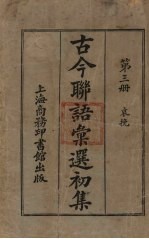 第三册 哀挽
古今聯語彙選初集
上海商務印書館出版